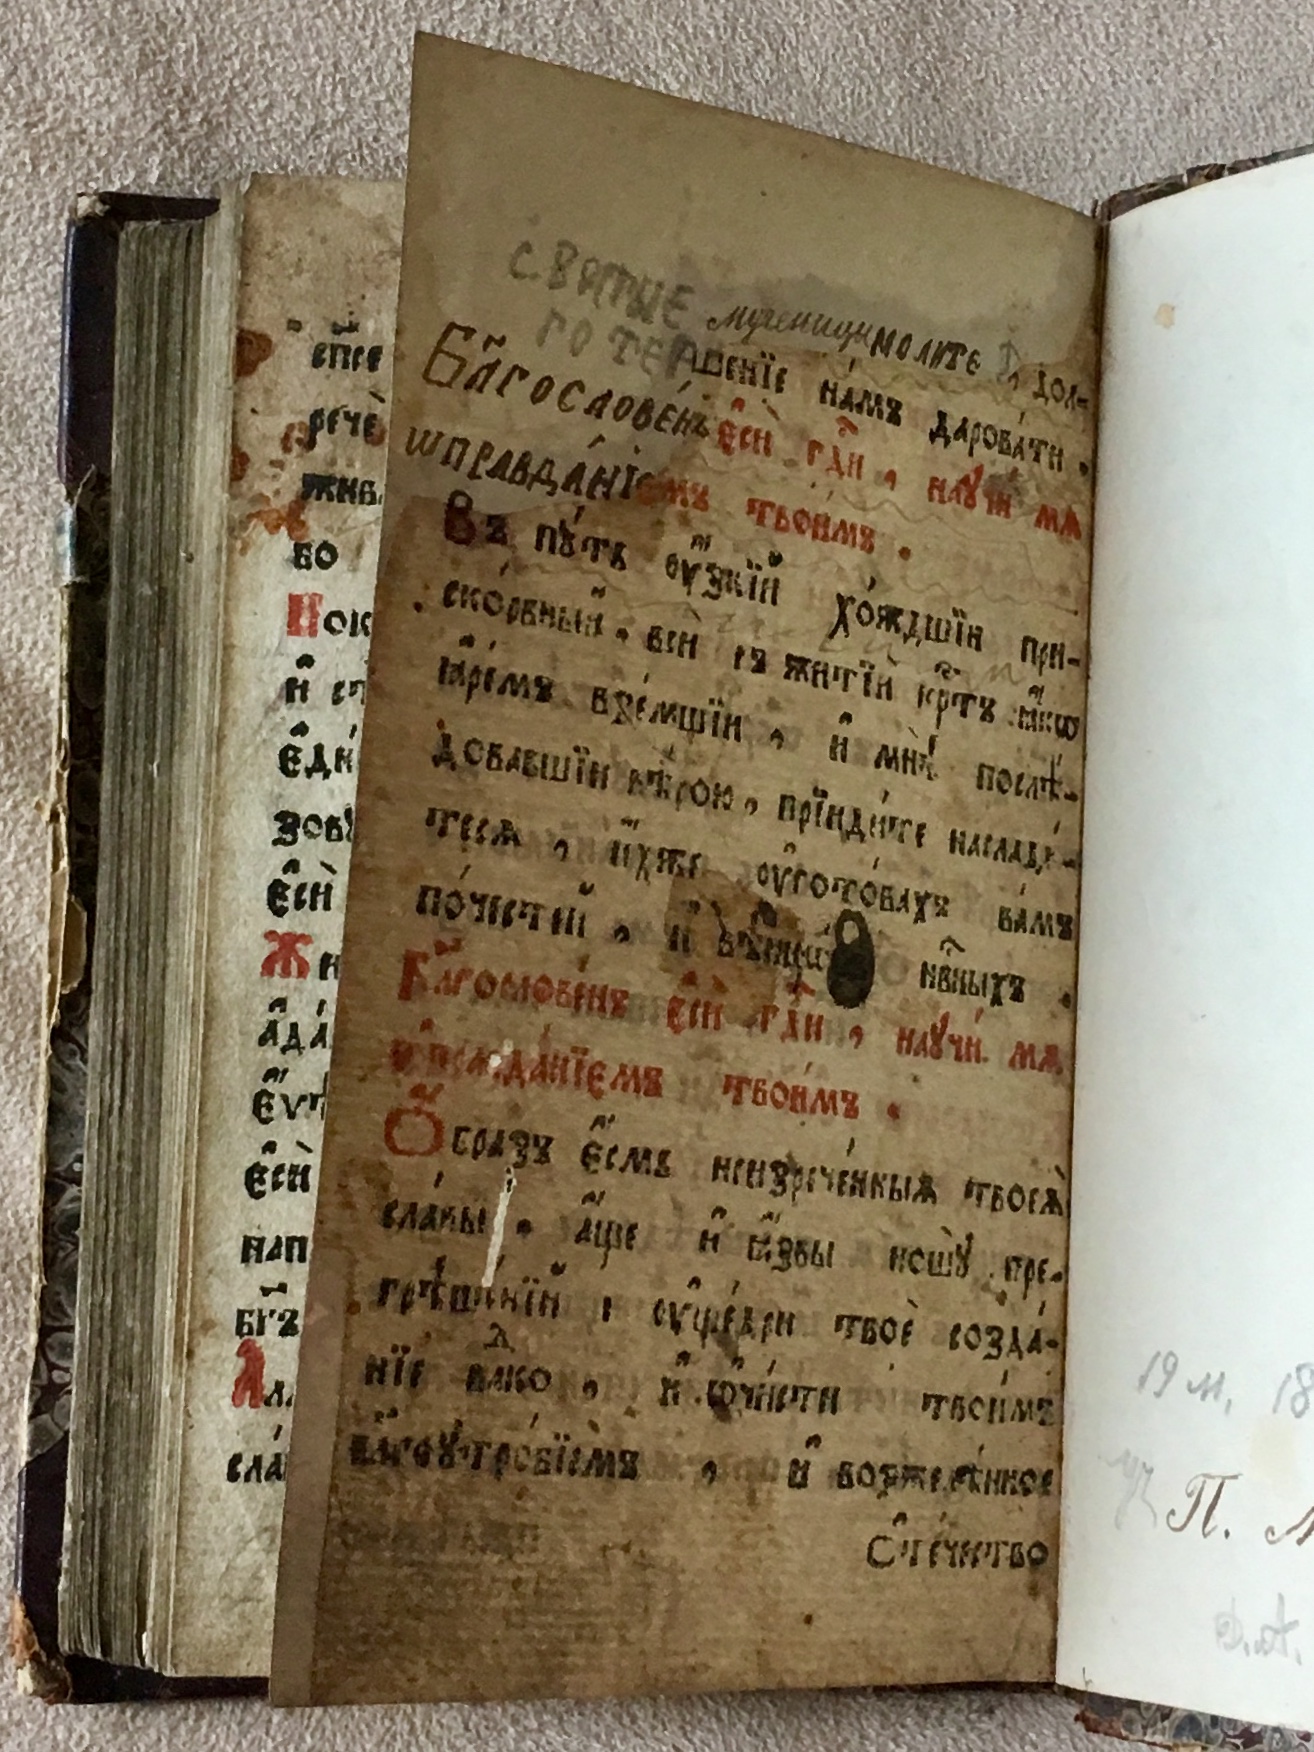 СВЯТЫЕ мученицы МОЛИТЕ дол-
ГО ТЕРпѣнїе на́мъ дарова́ти ,
Бл҃гослове́нъ є҆сѝ гд҇и , научи́ мѧ
ѡ҆правда́нїємъ твои̑мъ .
Въ пу́ть ѹ҆́зкїй хо́ждшїи при-
ско́рбный , всѝ въ житїѝ кр҇тъ ꙗ҆́кѡ
ꙗ҆ре́мъ взе́мшїи , и҆ мнѣ̀ послѣ́-
довавшїи вѣ́рою , прїиди́те наслади́-
тесѧ , и҆́хже ѹ҆гото́вахъ ва́мъ
по́честїй , и҆ вѣнцѡ́въ нб҇ныхъ .
Бл҃гослове́нъ є҆сѝ гд҇и , научи́ мѧ
ѡ҆правда́нїємъ твои̑мъ .
О҆́бразъ є҆́смь неизрече́нныѧ твоеѧ̀
сла́вы , а҆́ще и҆ ꙗ҆́звы ношꙋ̀ пре-
грѣше́нїй , ѹ҆ще́дри твоѐ созда́-
нїе влд҇ко , и҆ ѡ҆чи́сти твои́мъ
бл҃гоутро́бїемъ , и҆ возжеле́нное
Ѻ҆те́чество
спсе
рече
жив
во
Пок
и҆ ст
є҆ди
зову
є҆сѝ
Жи
а҆да́
є҆ѵ
є҆сѝ
нап
бг҃ъ
Алл
сла
19 м. 18
П.